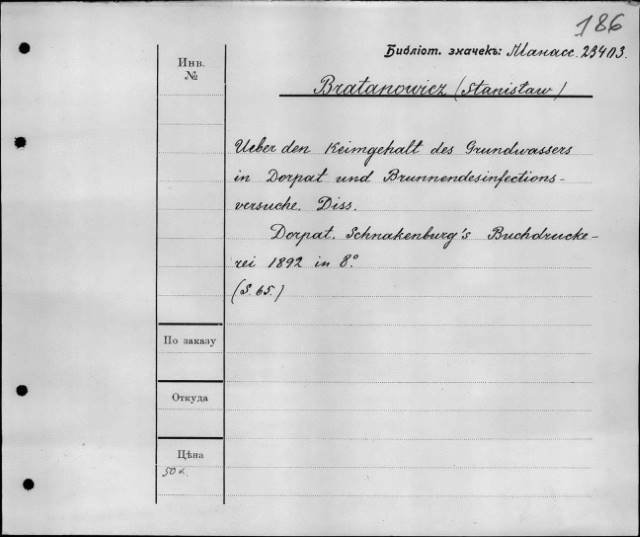 186
Библіот. значекъ: Манасс. 23403.
Инв.
№
Bratanowicz (Stanisław)
Ueber den Keimgehalt des Grundwassers
in Dorpat und Brunnendesinfections-
versuche. Diss.
Dorpat. Schnakenburg's Buchdrucke-
rei 1892 in 8º.
(S. 65.)
По заказу
Откуда
Цѣна
50 к.